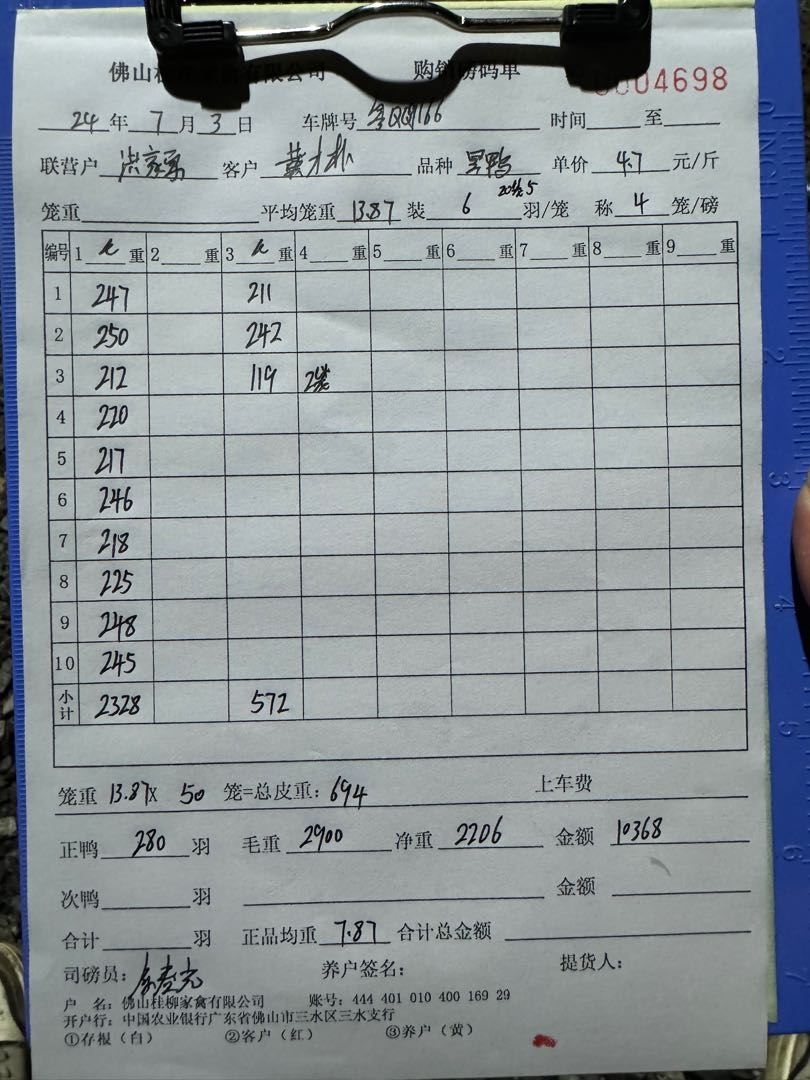 佛山桂柳家禽有限公司 购销磅码单 0004698
24 年 7 月 3 日 车牌号 166 时间 至
联营户 客户 黄 林 品种 黑鸭 单价 4.7 元/斤
20 5
笼重 平均笼重 13.87 装 6 羽/笼 称 4 笼/磅
编号 1 重 2 重 3 重 4 重 5 重 6 重 7 重 8 重 9 重
1 247 211
2 250 242
3 212 119 2笼
4 220
5 217
6 246
7 218
8 225
9 248
10 245
小计 2328 572
笼重 13.87X 50 笼=总皮重: 694 上车费
正鸭 280 羽 毛重 2900 净重 2206 金额 10368
次鸭 羽 金额
合计 羽 正品均重 7.87 合计总金额
司磅员: 养户签名: 提货人:
户 名: 佛山桂柳家禽有限公司 账号: 444 401 010 400 169 29
开户行: 中国农业银行广东省佛山市三水区三水支行
①存根(白) ②客户(红) ③养户(黄)
0 INCH 1
2
3
4
5
6
7